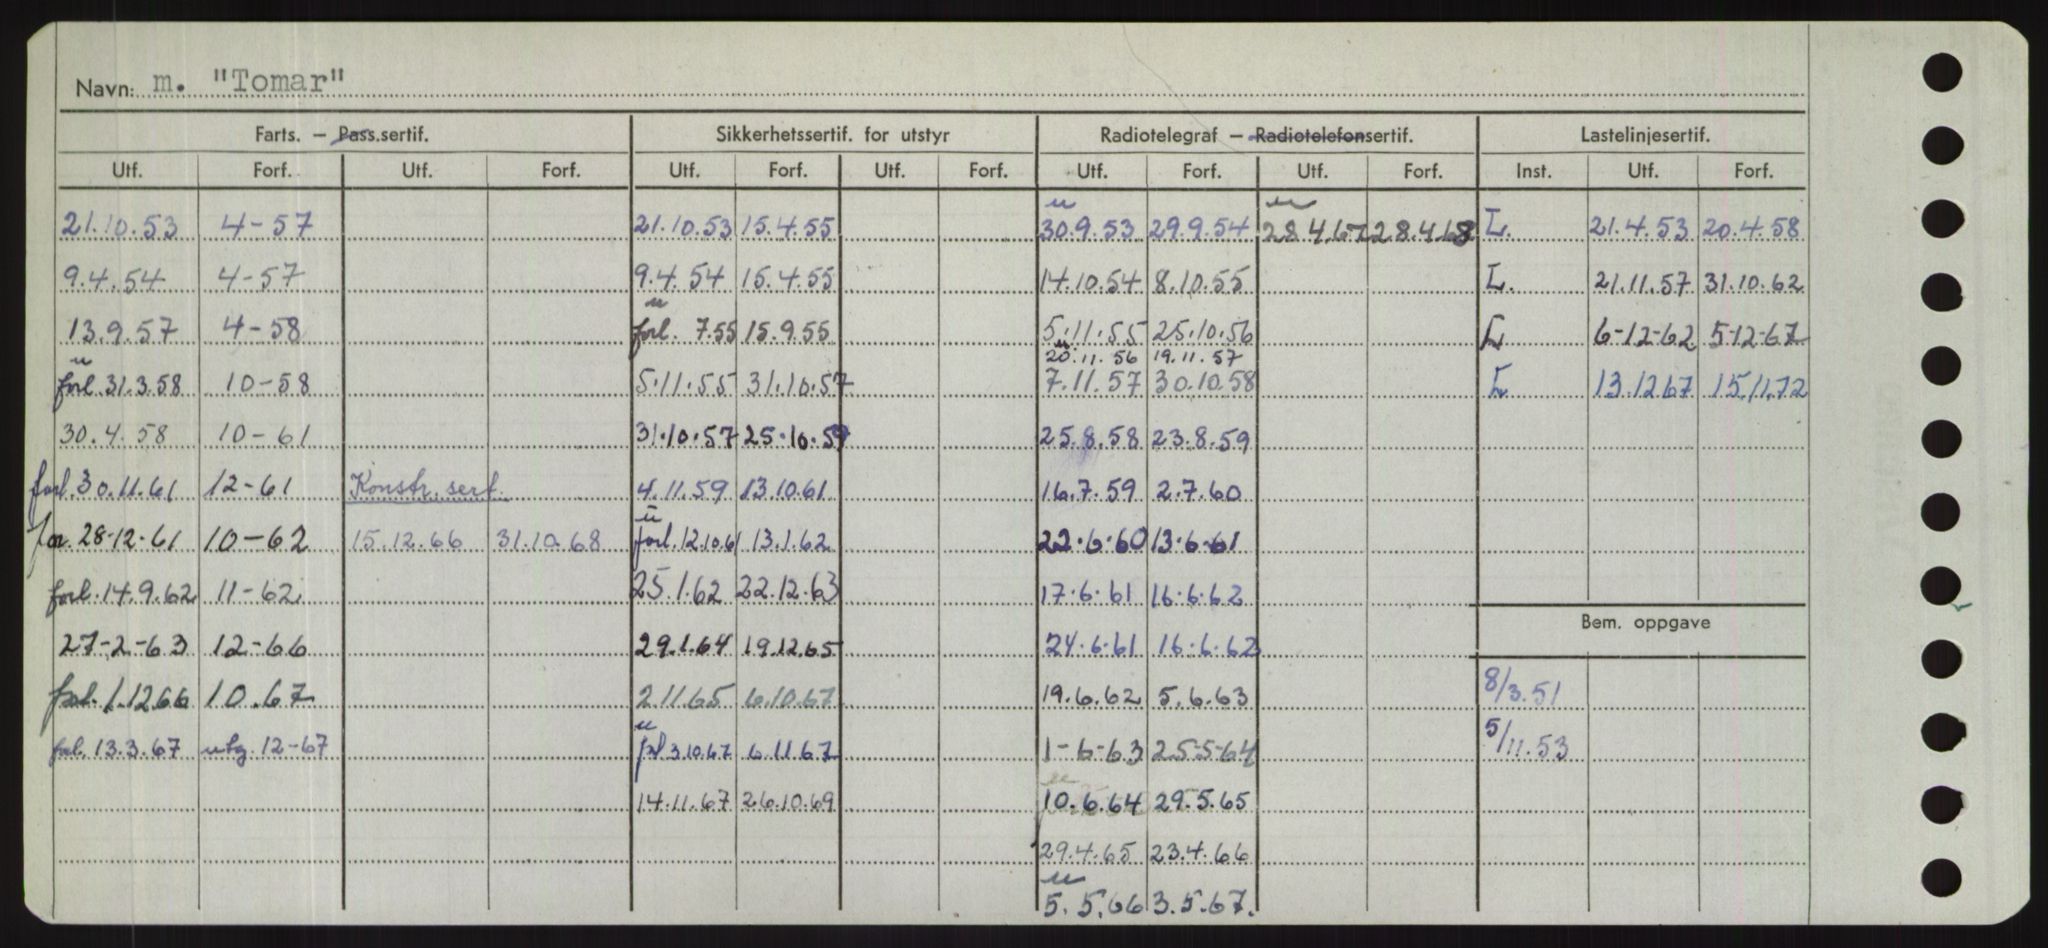 Navn: m. "Tomar"
Farts. — Pass.sertif. Sikkerhetssertif. for utstyr Radiotelegraf — Radiotelefonsertif. Lastelinjesertif.
Utf. Forf. Utf. Forf. Utf. Forf. Utf. Forf. Utf. Forf. Utf. Forf. Inst. Utf. Forf.
u u
21.10.53 4-57 21.10.53 15.4.55 30.9.53 29.9.54 28.4.67 28.4.68 L. 21.4.53 20.4.58
9.4.54 4-57 9.4.54 15.4.55 14.10.54 8.10.55 L. 21.11.57 31.10.62
u
13.9.57 4-58 forl. 7.55 15.9.55 5.11.55 25.10.56 L 6-12-62 5-12-67
u 20.11.56 19.11.57
forl. 31.3.58 10-58 5.11.55 31.10.57 7.11.57 30.10.58 L 13.12.67 15.11.72
30.4.58 10-61 31.10.57 25.10.59 25.8.58 23.8.59
forl. 30.11.61 12-61 Konstr. sert. 4.11.59 13.10.61 16.7.59 2.7.60
u
for. 28-12-61 10-62 15.12.66 31.10.68 forl. 12.10.61 13.1.62 22.6.60 13-6-61
forl. 14.9.62 11-62 25.1.62 22.12.63 17.6.61 16.6.62
Bem. oppgave
27-2-63 12-66 29.1.64 19.12.65 24.6.61 16.6.62
forl. 1.12.66 10.67 2.11.65 6.10.67 19.6.62 5.6.63 8/3.51
u
forl. 13.3.67 utg. 12-67 forl 3.10.67 6.11.67 1-6-63 25-5-64 5/11.53
u
14.11.67 26.10.69 10.6.64 29.5.65
29.4.65 23.4.66
u
5.5.66 3.5.67.